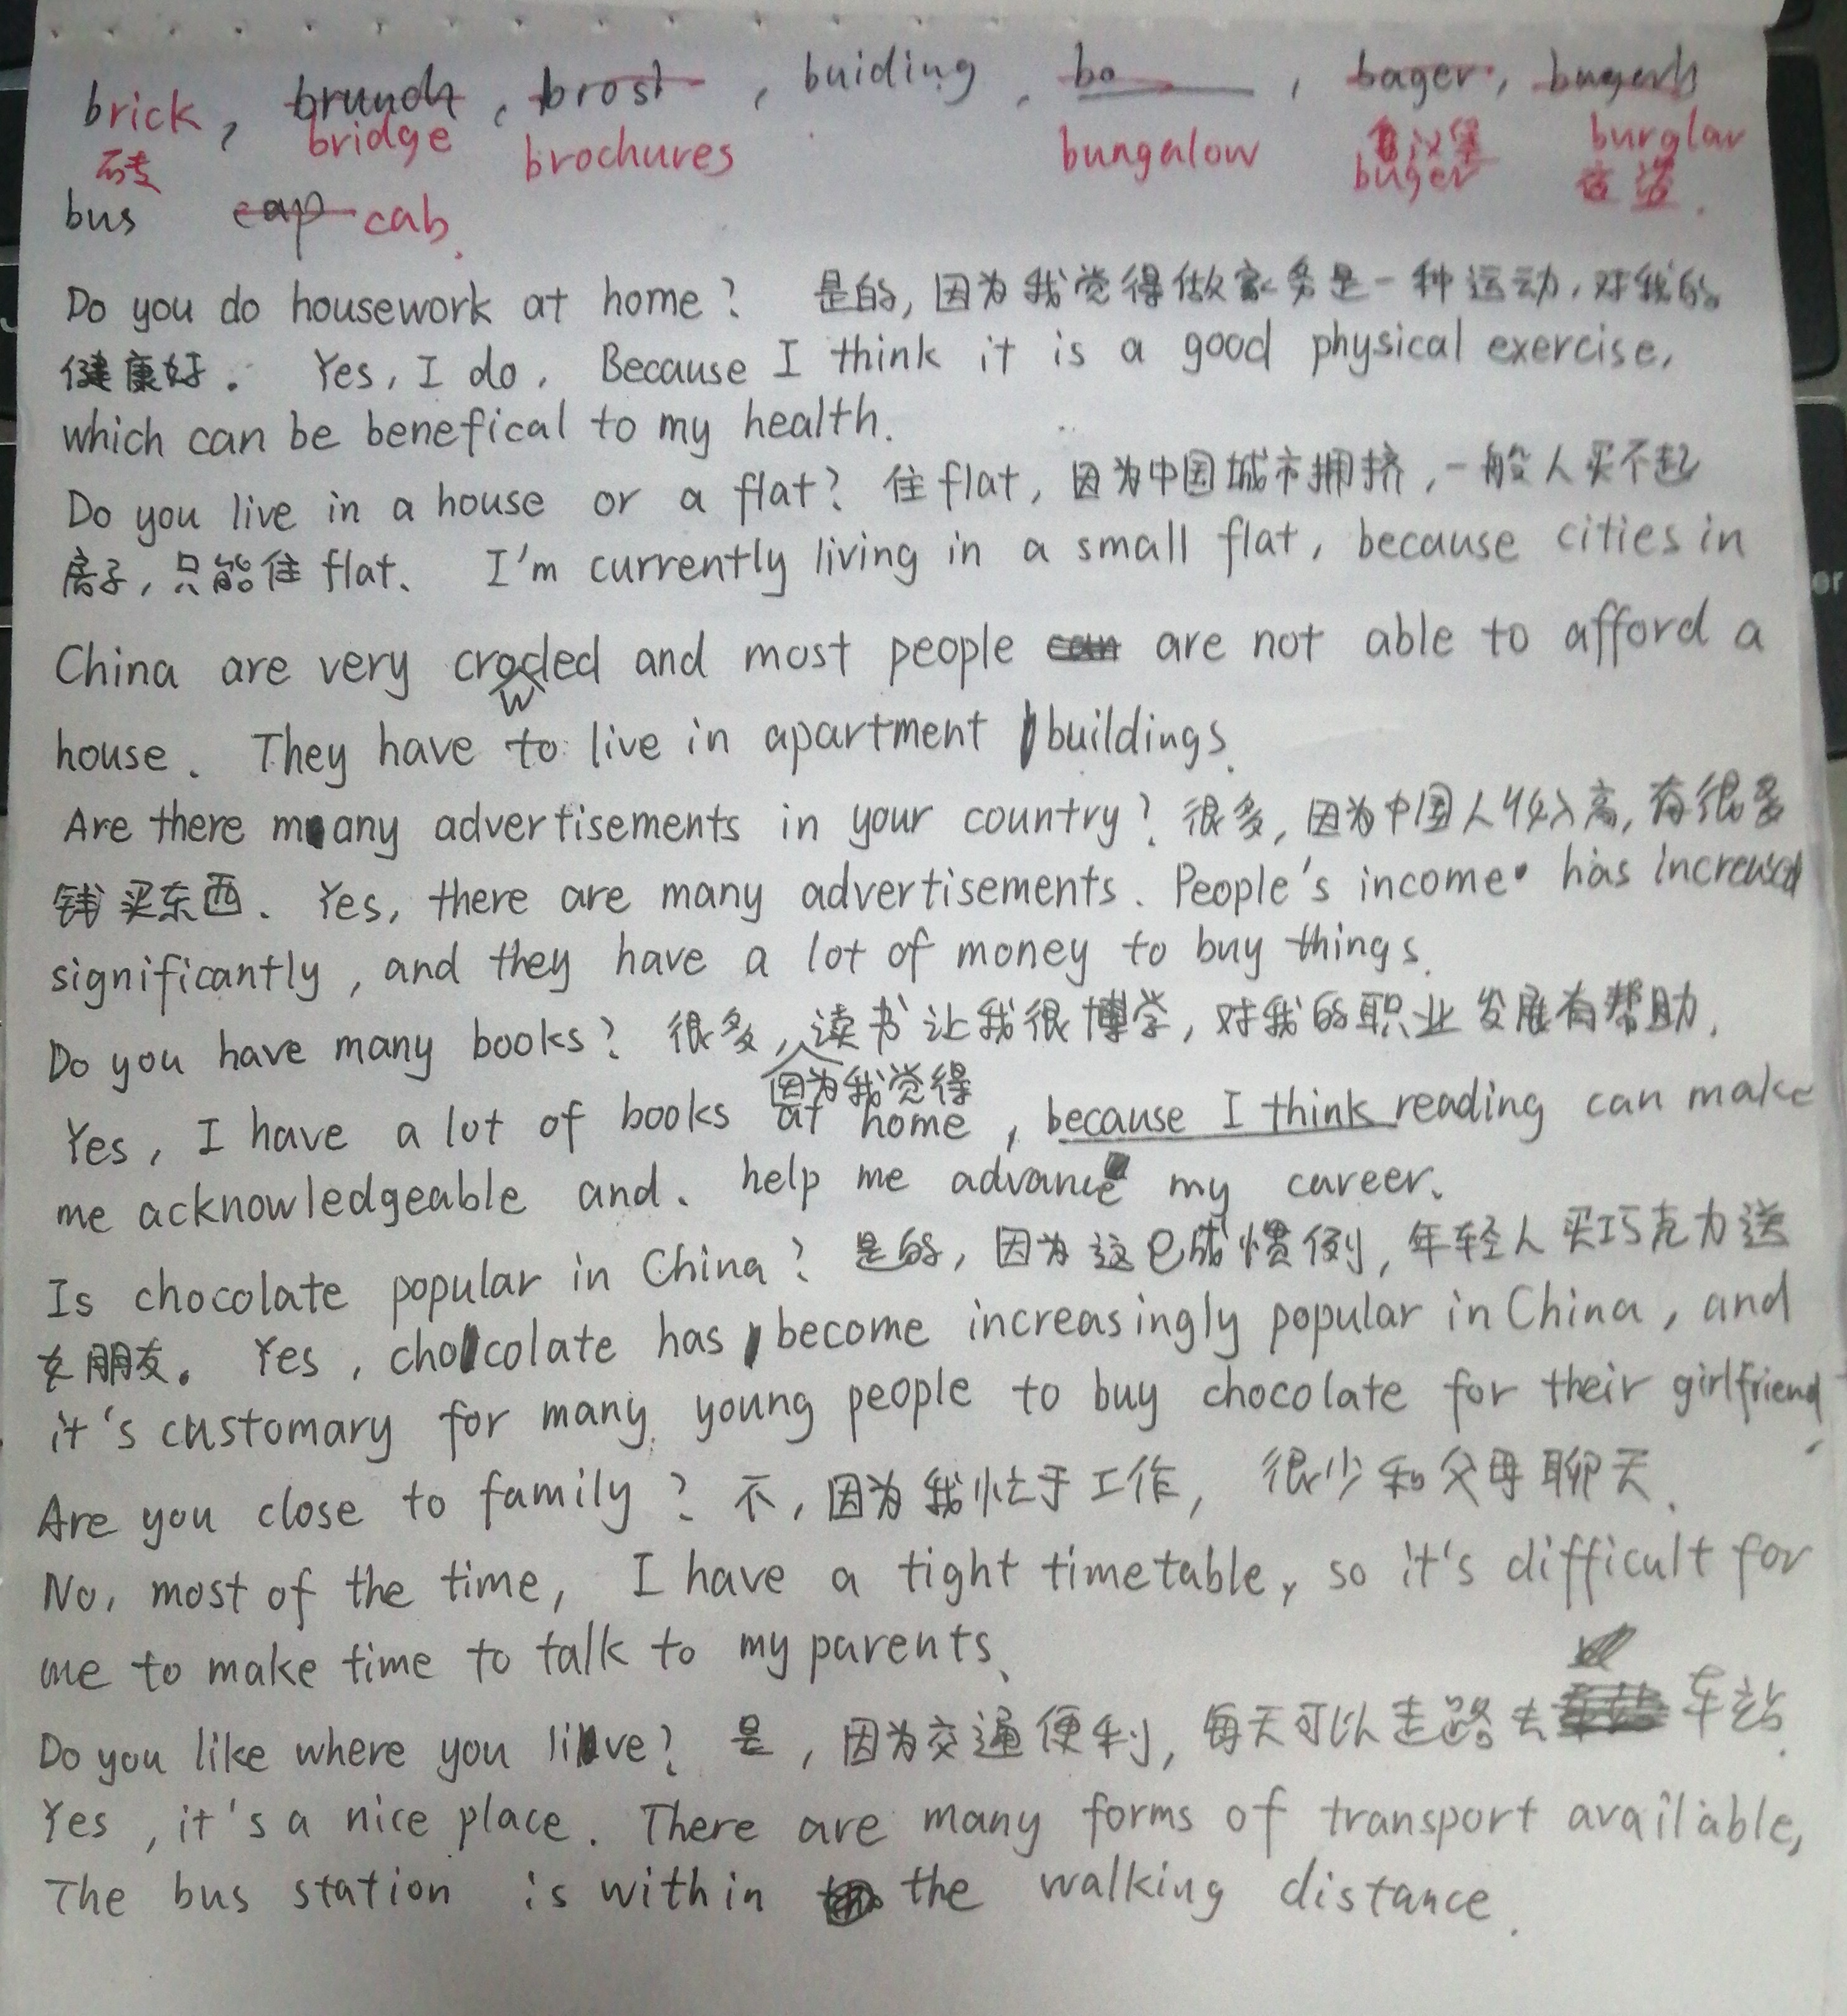 brick, brunch, brost, buiding, bo, bager, bugerh
砖 bridge brochures bungalow 汉堡 burglar
buger 盗
bus cap cab.
Do you do housework at home? 是的,因为我觉得做家务是一种运动,对我的
健康好. Yes, I do. Because I think it is a good physical exercise,
which can be benefical to my health.
Do you live in a house or a flat? 住flat, 因为中国城市拥挤,一般人买不起
房子,只能住flat. I'm currently living in a small flat, because cities in
China are very crowded and most people can are not able to afford a
house. They have to live in apartment buildings.
Are there many advertisements in your country? 很多,因为中国人收入高,有很多
钱买东西. Yes, there are many advertisements. People's income has increased
significantly, and they have a lot of money to buy things.
Do you have many books? 很多,读书让我很博学,对我的职业发展有帮助.
因为我觉得
Yes, I have a lot of books at home, because I think reading can make
me acknowledgeable and. help me advance my career.
Is chocolate popular in China? 是的,因为这已成惯例,年轻人买巧克力送
女朋友. Yes, chocolate has become increasingly popular in China, and
it's customary for many young people to buy chocolate for their girlfriend.
Are you close to family? 不,因为我忙于工作, 很少和父母聊天.
No, most of the time, I have a tight timetable, so it's difficult for
me to make time to talk to my parents.
Do you like where you live? 是,因为交通便利,每天可以走路去车站.
Yes, it's a nice place. There are many forms of transport available,
The bus station is within the walking distance.